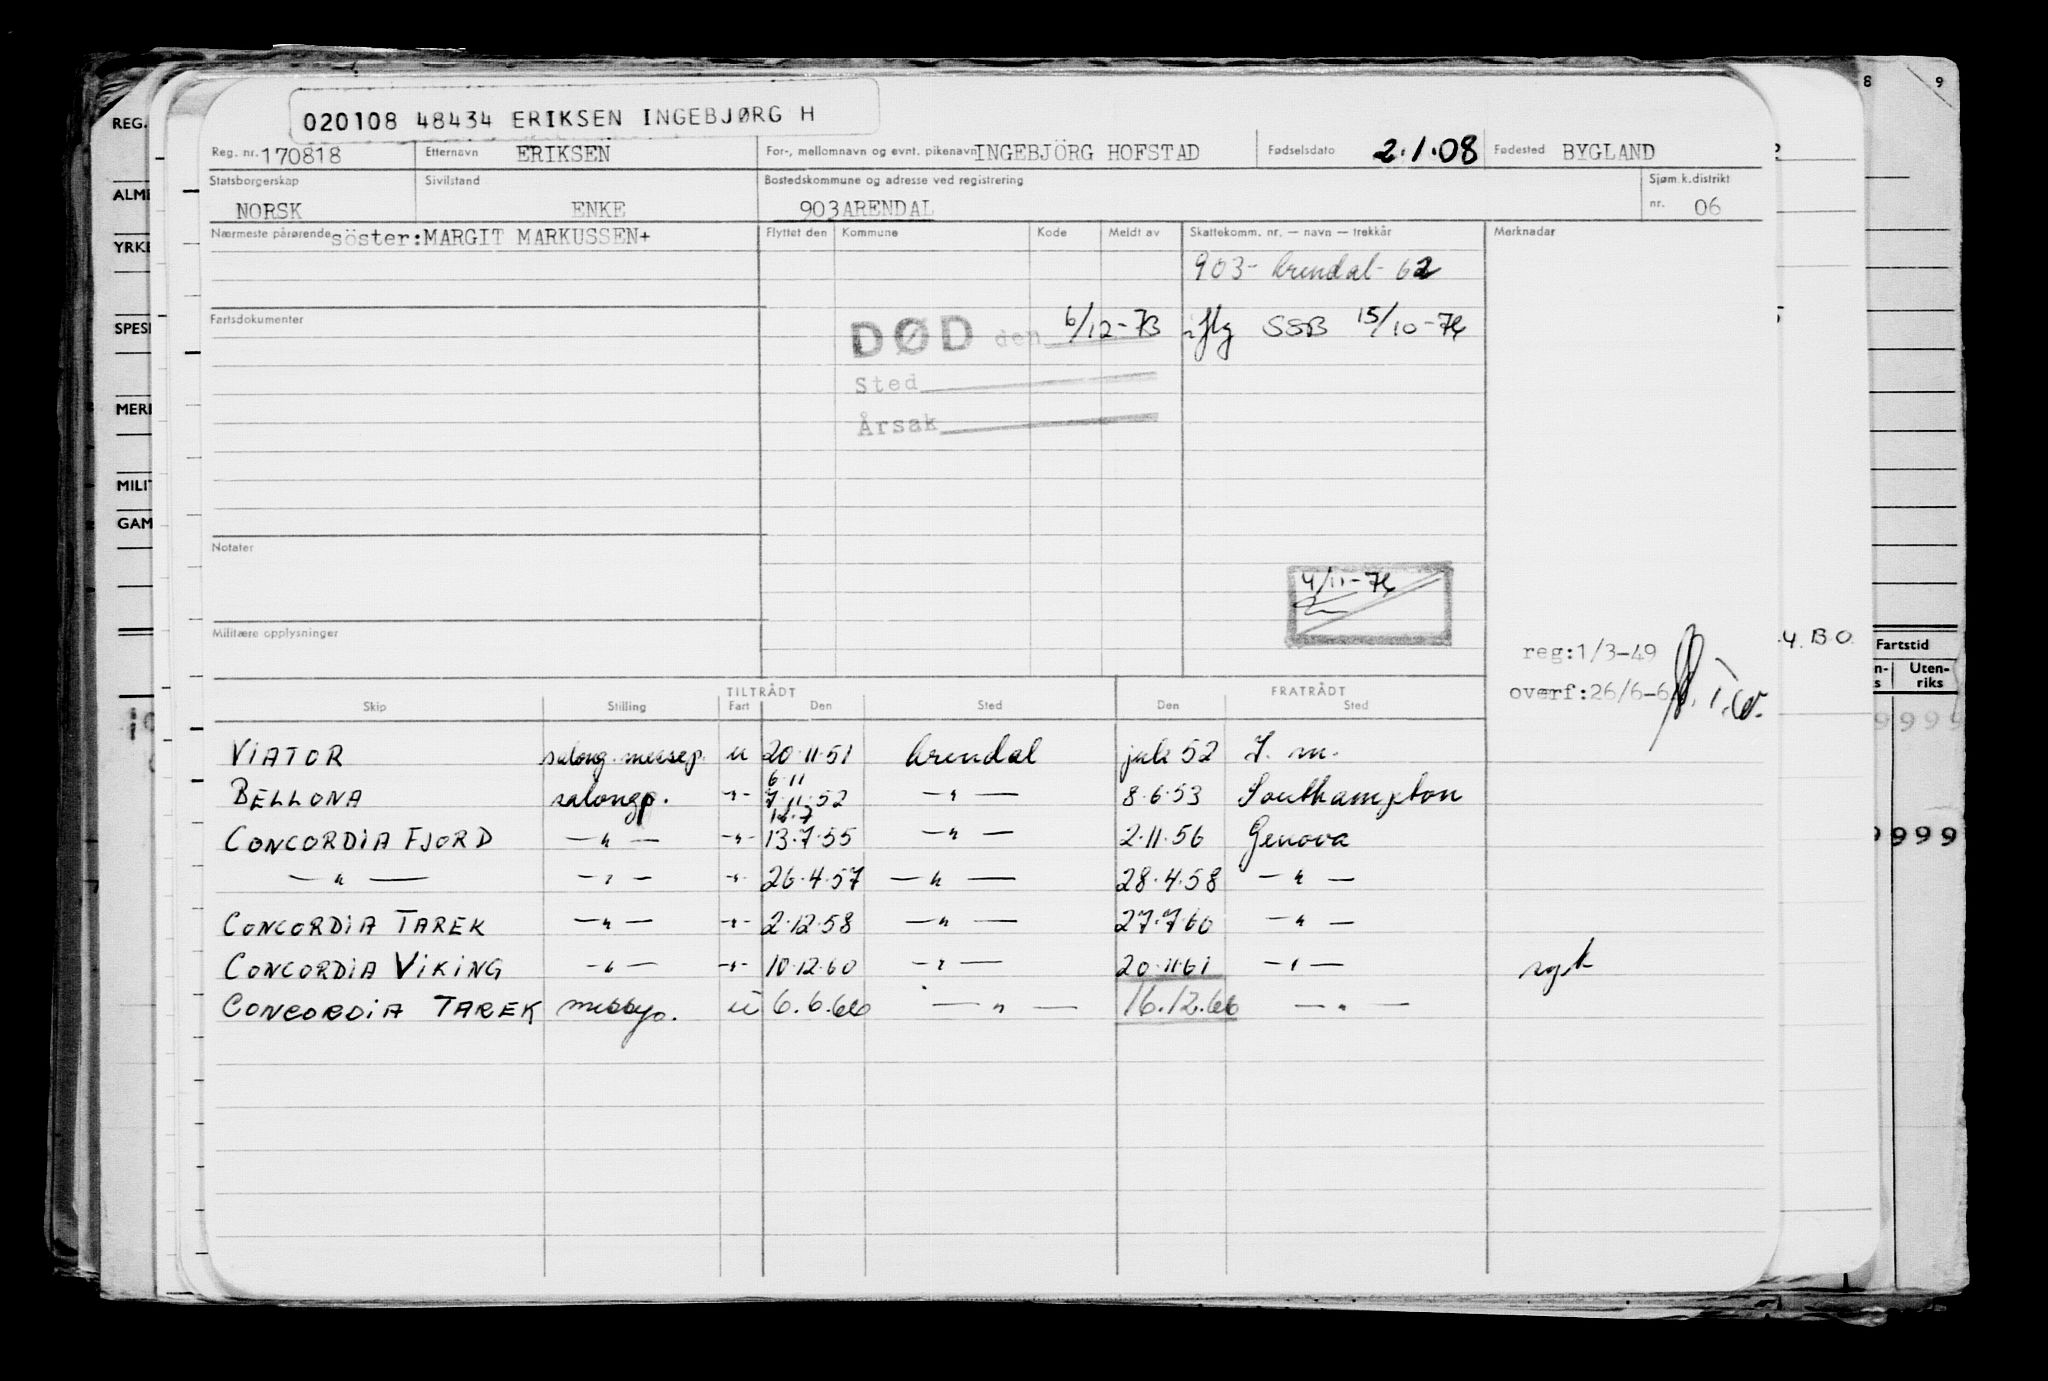 020108 48434 ERIKSEN INGEBJØRG H
Reg. nr. 170818 Etternavn ERIKSEN For-, mellomnavn og evnt. pikenavn INGEBJÖRG HOFSTAD Fødselsdato 2.1.08 Fødested BYGLAND
Statsborgerskap Sivilstand Bostedskommune og adresse ved registrering Sjøm.k.distrikt
NORSK ENKE 903 ARENDAL nr. 06
Nærmeste pårørende söster:MARGIT MARKUSSEN+ Flyttet den Kommune Kode Meldt av Skattekomm. nr. — navn — trekkår Merknadar
903- Arendal- 62
Fartsdokumenter
DØD den 6/12-73 iflg SSB 15/10-74
Sted
Årsak
Notater
4/11-74
Militære opplysninger
reg:1/3-49
overf:26/6-6
TILTRÅDT FRATRÅDT
Skip Stilling Fart Den Sted Den Sted
VIATOR salong.messep. u 20.11.51 Arendal juli 52 I. m.
6.11
BELLONA salongp. -"- 7.11.52 -"- 8.6.53 Southampton
12.7
CONCORDIA FJORD -"- -"- 13.7.55 -"- 2.11.56 Genova
-"- -"- -"- 26.4.57 -"- 28.4.58 -"-
CONCORDIA TAREK -"- -"- 2.12.58 -"- 27.7.60 -"-
CONCORDIA VIKING -"- -"- 10.12.60 -"- 20.11.61 -"- syk
CONCORDIA TAREK messep. u 6.6.66 -"- 16.12.66 -"-
REG.
ALME
YRKE
SPESI
MERI
MILIT
GAM
8 9
4. B O.
Fartstid
Uten-
riks
9999
9999